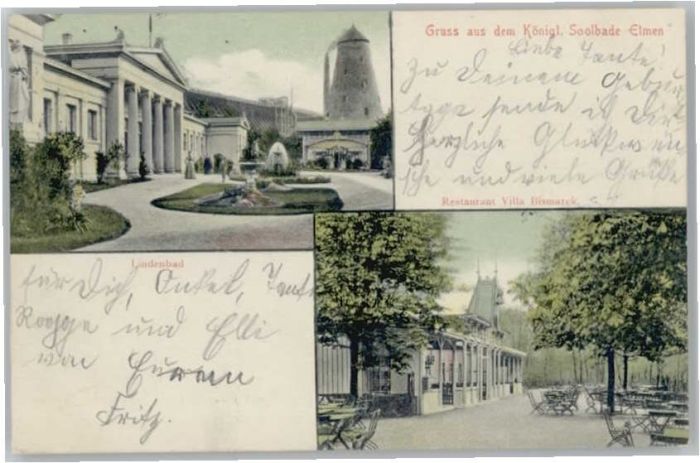 Gruss aus dem Königl. Soolbade Elmen
Liebe Tante!
Zu Deinem Gebur
tstage sende ich Dir
Herzliche Glückwün
sche und viele Grüße
Restaurant Villa Bismarck
Lindenbad
für Dich, Onkel, Tante
Rogge und Elli
von Eurem
Fritz.